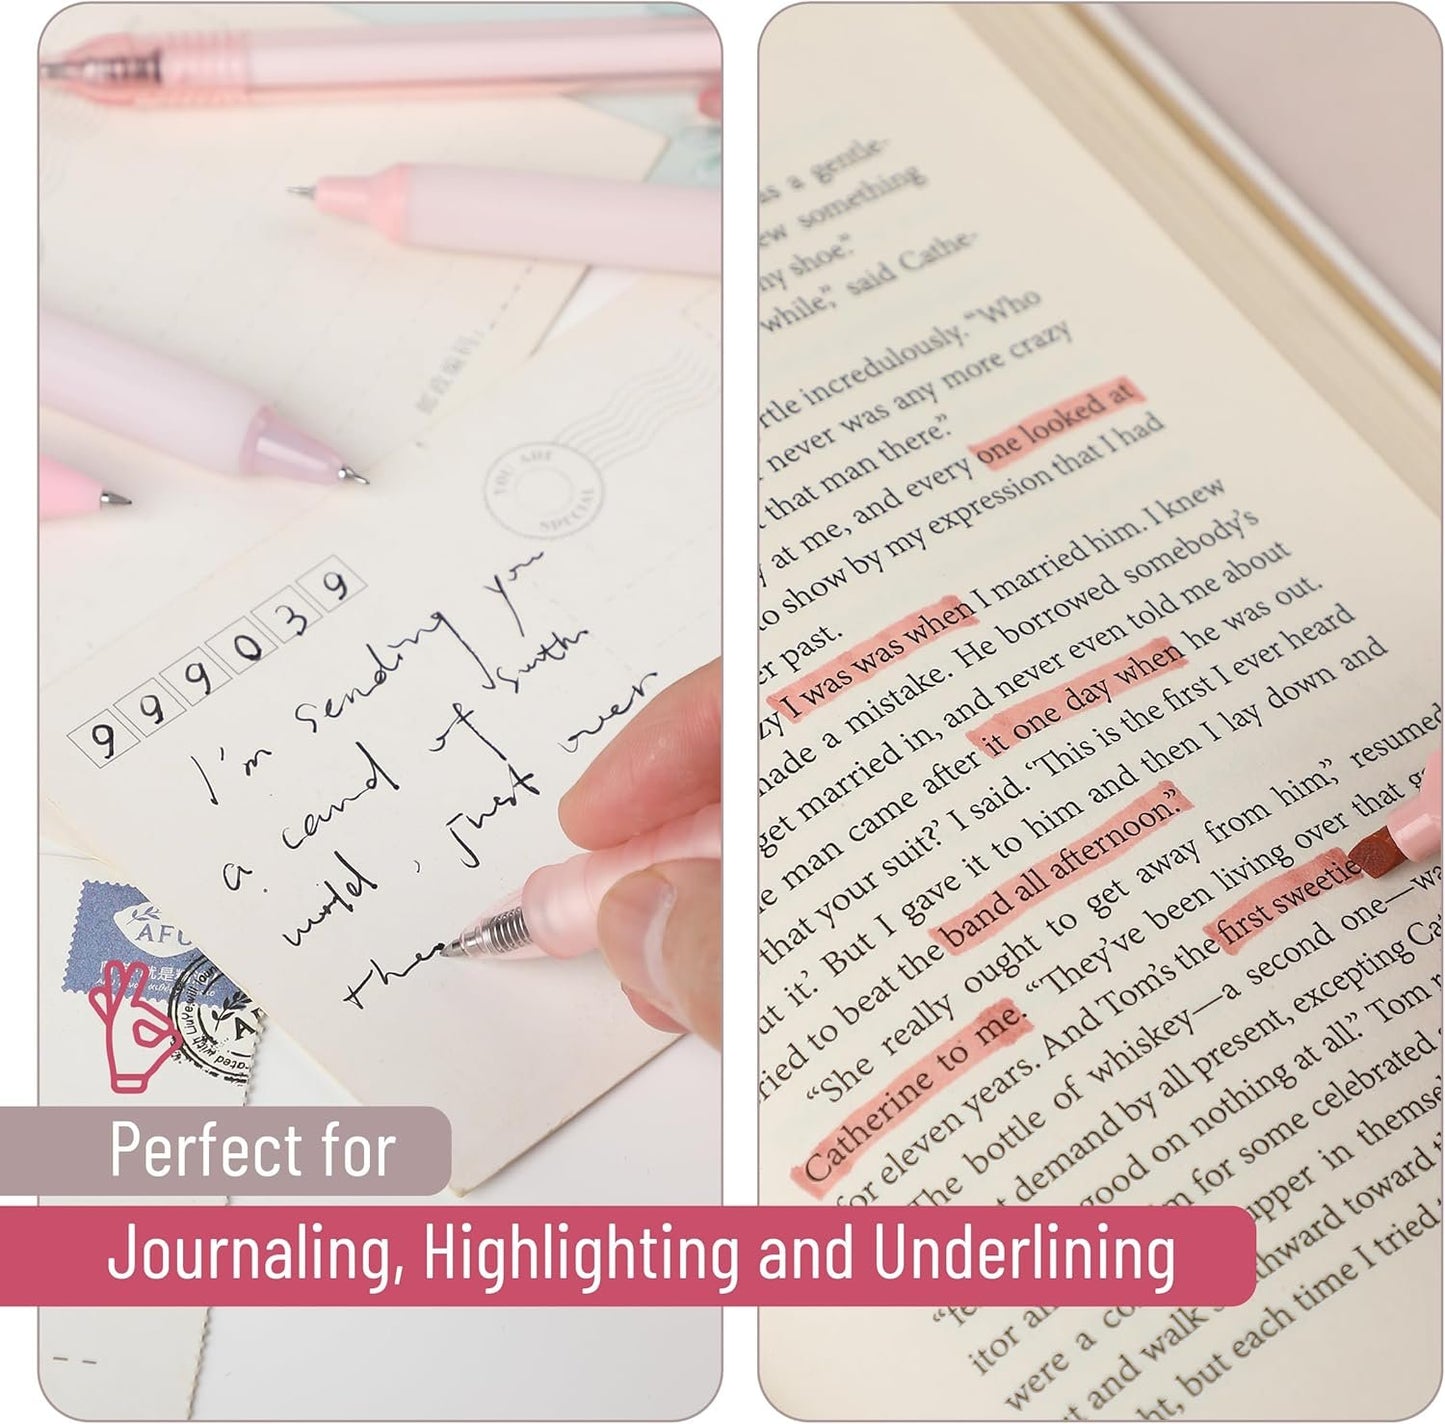 YOU ARE
SPECIAL
999039
I'm sending you
a card of
world, just over
the
AFU
Perfect for
Journaling, Highlighting and Underlining
as a gentle-
ew something
my shoe."
while," said Cathe-
rtle incredulously. "Who
never was any more crazy
that man there."
y at me, and every one looked at
to show by my expression that I had
er past.
zy I was was when I married him. I knew
made a mistake. He borrowed somebody's
get married in, and never even told me about
e man came after it one day when he was out.
that your suit?' I said. 'This is the first I ever heard
ut it.' But I gave it to him and then I lay down and
ried to beat the band all afternoon."
"She really ought to get away from him," resumed
Catherine to me. "They've been living over that ga
for eleven years. And Tom's the first sweetie
The bottle of whiskey—a second one—wa
t demand by all present, excepting Cat
good on nothing at all." Tom r
m for some celebrated s
upper in themse
thward toward t
"fe
itor an
were a co
t and walk
ht, but each time I tried